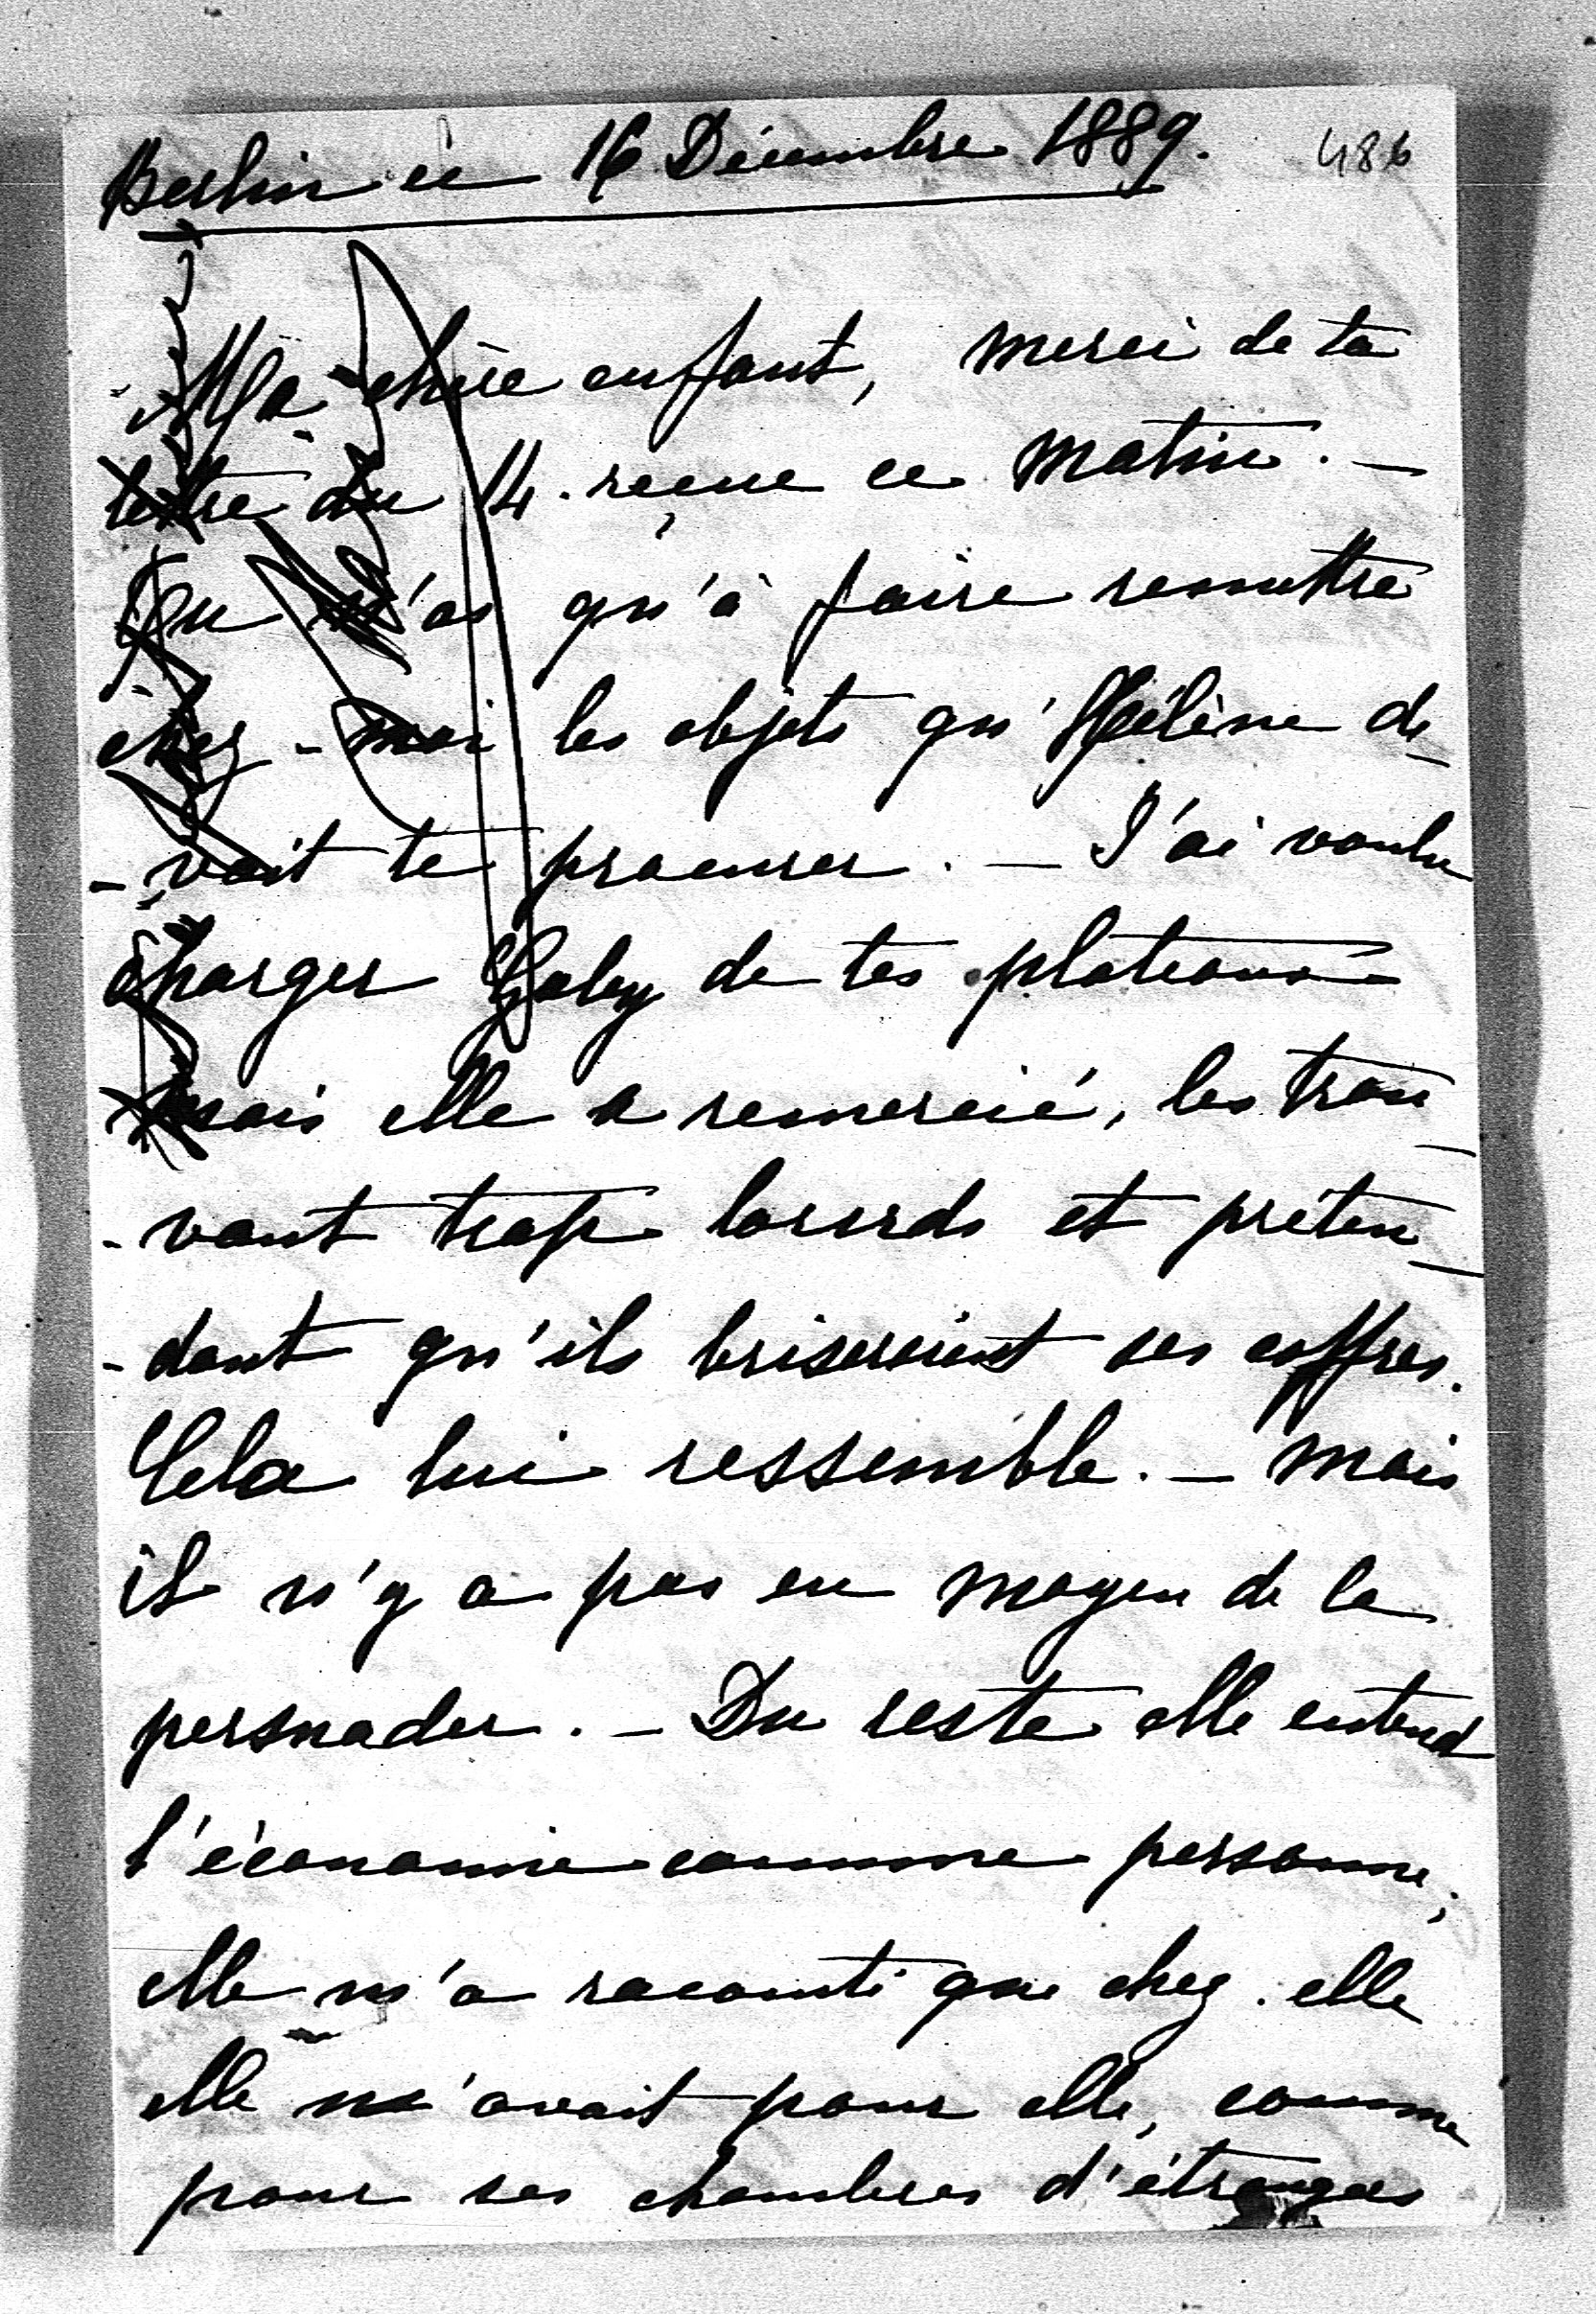 Berlin ce 16 Décembre 1889.
486
Ma chère enfant, merci de ta
lettre du 14. reçue ce matin. —
Tu n'as qu'à faire remettre
chez - moi les objets qu'Hélène de-
- vait te procurer. — J'ai voulu
charger Gaby de tes plateaux
mais elle a remercié, les trou-
- vant trop lourds et préten-
- dant qu'ils briseraient ses coffres.
Cela lui ressemble. — Mais
il n'y a pas eu moyen de la
persuader. — Du reste elle entend
l'économie comme personne;
elle m'a raconté que chez elle
elle n'avait pour elle, comme
pour ses chambres d'étrangers